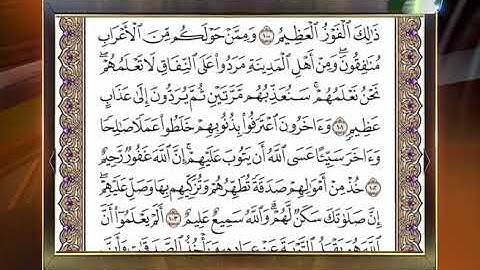 ذَٰلِكَ ٱلۡفَوۡزُ ٱلۡعَظِيمُ ١٠٠ وَمِمَّنۡ حَوۡلَكُم مِّنَ ٱلۡأَعۡرَابِ
مُنَٰفِقُونَۖ وَمِنۡ أَهۡلِ ٱلۡمَدِينَةِ مَرَدُواْ عَلَى ٱلنِّفَاقِ لَا تَعۡلَمُهُمۡۖ
نَحۡنُ نَعۡلَمُهُمۡۚ سَنُعَذِّبُهُم مَّرَّتَيۡنِ ثُمَّ يُرَدُّونَ إِلَىٰ عَذَابٍ
عَظِيمٖ ١٠١ وَءَاخَرُونَ ٱعۡتَرَفُواْ بِذُنُوبِهِمۡ خَلَطُواْ عَمَلٗا صَٰلِحٗا
وَءَاخَرَ سَيِّئًا عَسَى ٱللَّهُ أَن يَتُوبَ عَلَيۡهِمۡۚ إِنَّ ٱللَّهَ غَفُورٞ رَّحِيمٌ
١٠٢ خُذۡ مِنۡ أَمۡوَٰلِهِمۡ صَدَقَةٗ تُطَهِّرُهُمۡ وَتُزَكِّيهِم بِهَا وَصَلِّ عَلَيۡهِمۡۖ
إِنَّ صَلَوٰتَكَ سَكَنٞ لَّهُمۡۗ وَٱللَّهُ سَمِيعٌ عَلِيمٌ ١٠٣ أَلَمۡ يَعۡلَمُوٓاْ أَنَّ